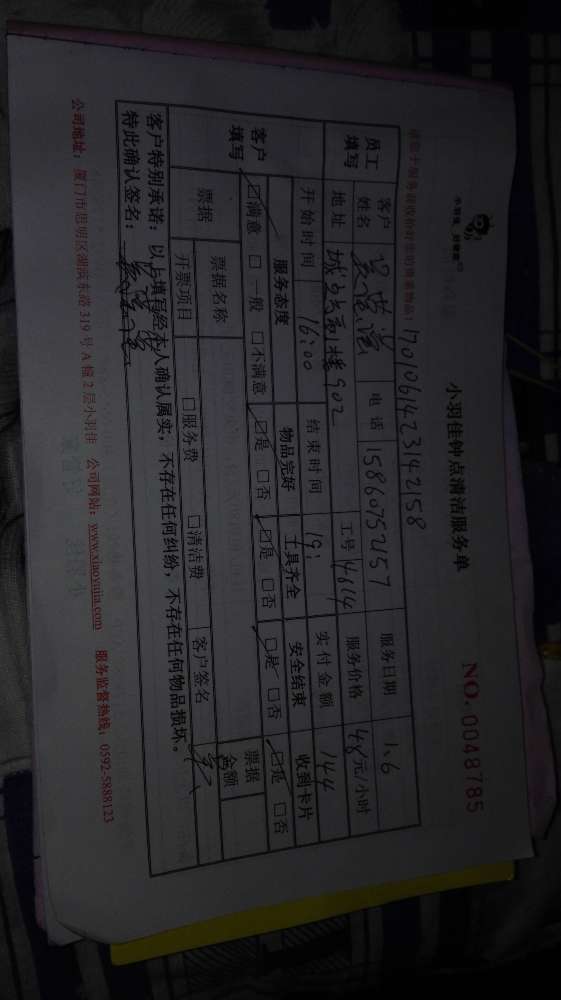 小羽佳 好管家
小羽佳钟点清洁服务单
NO. 0048785
1701061423142158
员工填写
客户姓名 电话 15860752157 服务日期 1.6
地址 902 工号 4614 服务价格 48元/小时
开始时间 16:00 结束时间 19: 实付金额 144
客户填写
服务态度 物品完好 工具齐全 安全结束 收到卡片
☑满意 □一般 □不满意 ☑是 □否 ☑是 □否 ☑是 □否 ☑是 □否
票据 票据名称 票据金额
开票项目 □服务费 □清洁费 客户签名
客户特别承诺：以上填写经本人确认属实，不存在任何纠纷，不存在任何物品损坏。
特此确认签名：
公司地址：厦门市思明区湖滨东路319号A幢2层小羽佳 公司网站：www.xiaoyujia.com 服务监督热线：0592-5888123